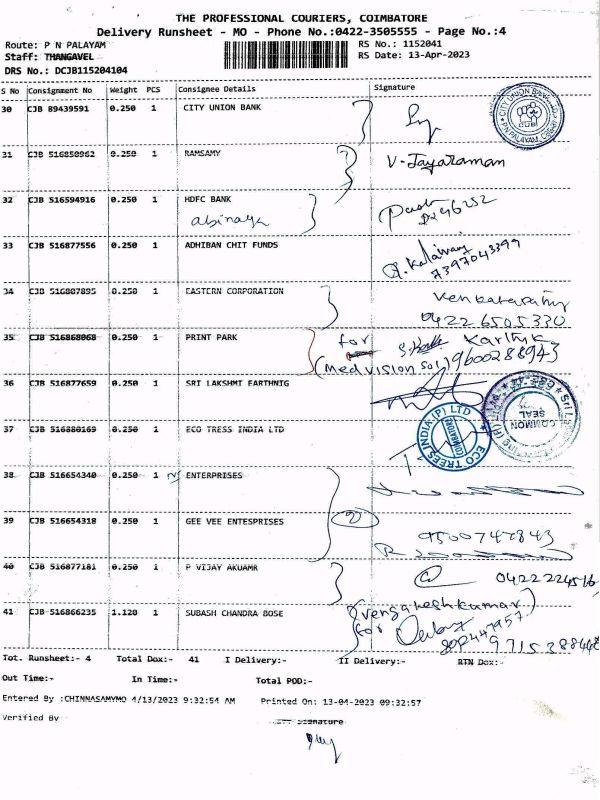 THE PROFESSIONAL COURIERS, COIMBATORE
Delivery Runsheet - MO - Phone No.:0422-3505555 - Page No.:4
Route: P N PALAYAM RS No.: 1152041
Staff: THANGAVEL RS Date: 13-Apr-2023
DRS No.: DCJB115204104
S No Consignment No Weight PCS Consignee Details Signature
30 CJB 89439591 0.250 1 CITY UNION BANK
CITY UNION BANK
31 CJB 516850962 0.250 1 RAMSAMY V-Jayaraman
32 CJB 516594916 0.250 1 HDFC BANK
abinaya
33 CJB 516877556 0.250 1 ADHIBAN CHIT FUNDS
7397043399
34 CJB 516807895 0.250 1 EASTERN CORPORATION
04226505330
35 CJB 516868068 0.250 1 PRINT PARK for Karthik
(Medvision Sol) 9600288943
36 CJB 516877659 0.250 1 SRI LAKSHMT EARTHNIG
COMMON SEAL
37 CJB 516880169 0.250 1 ECO TRESS INDIA LTD
ECO TREES INDIA (P) LTD
COIMBATORE
38 CJB 516654340 0.250 1 ENTERPRISES
39 CJB 516654318 0.250 1 GEE VEE ENTESPRISES 2
9500747843
40 CJB 516877181 0.250 1 P VIJAY AKUAMR
04222224516
41 CJB 516866235 1.120 1 SUBASH CHANDRA BOSE (Vengateshkumar)
for
Tot. Runsheet:- 4 Total Dox:- 41 I Delivery:- II Delivery:- RTN Dox:-
Out Time:- In Time:- Total POD:-
Entered By :CHINNASAMYMO 4/13/2023 9:32:54 AM Printed On: 13-04-2023 09:32:57
Verified By Signature